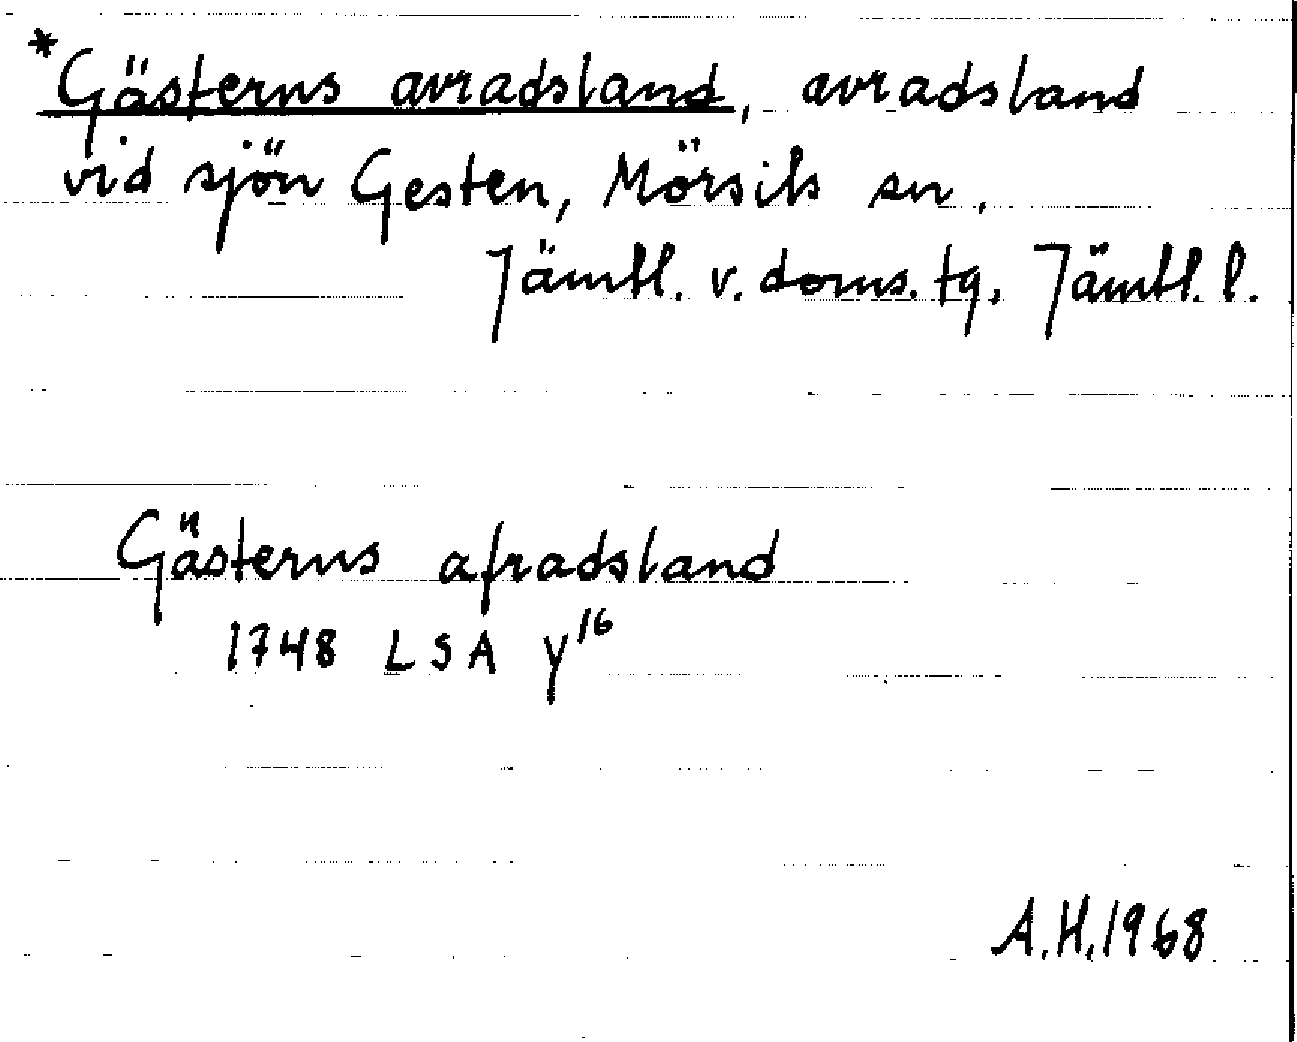 *Gästerns avradsland, avradsland
vid sjön Gesten, Mörsils sn.
Jämtl. v. doms. tg, Jämtl. l.
Gästerns afradsland
1748 LSA y16
A.H. 1968